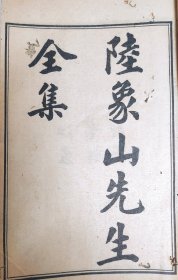 陸象山先生
全集